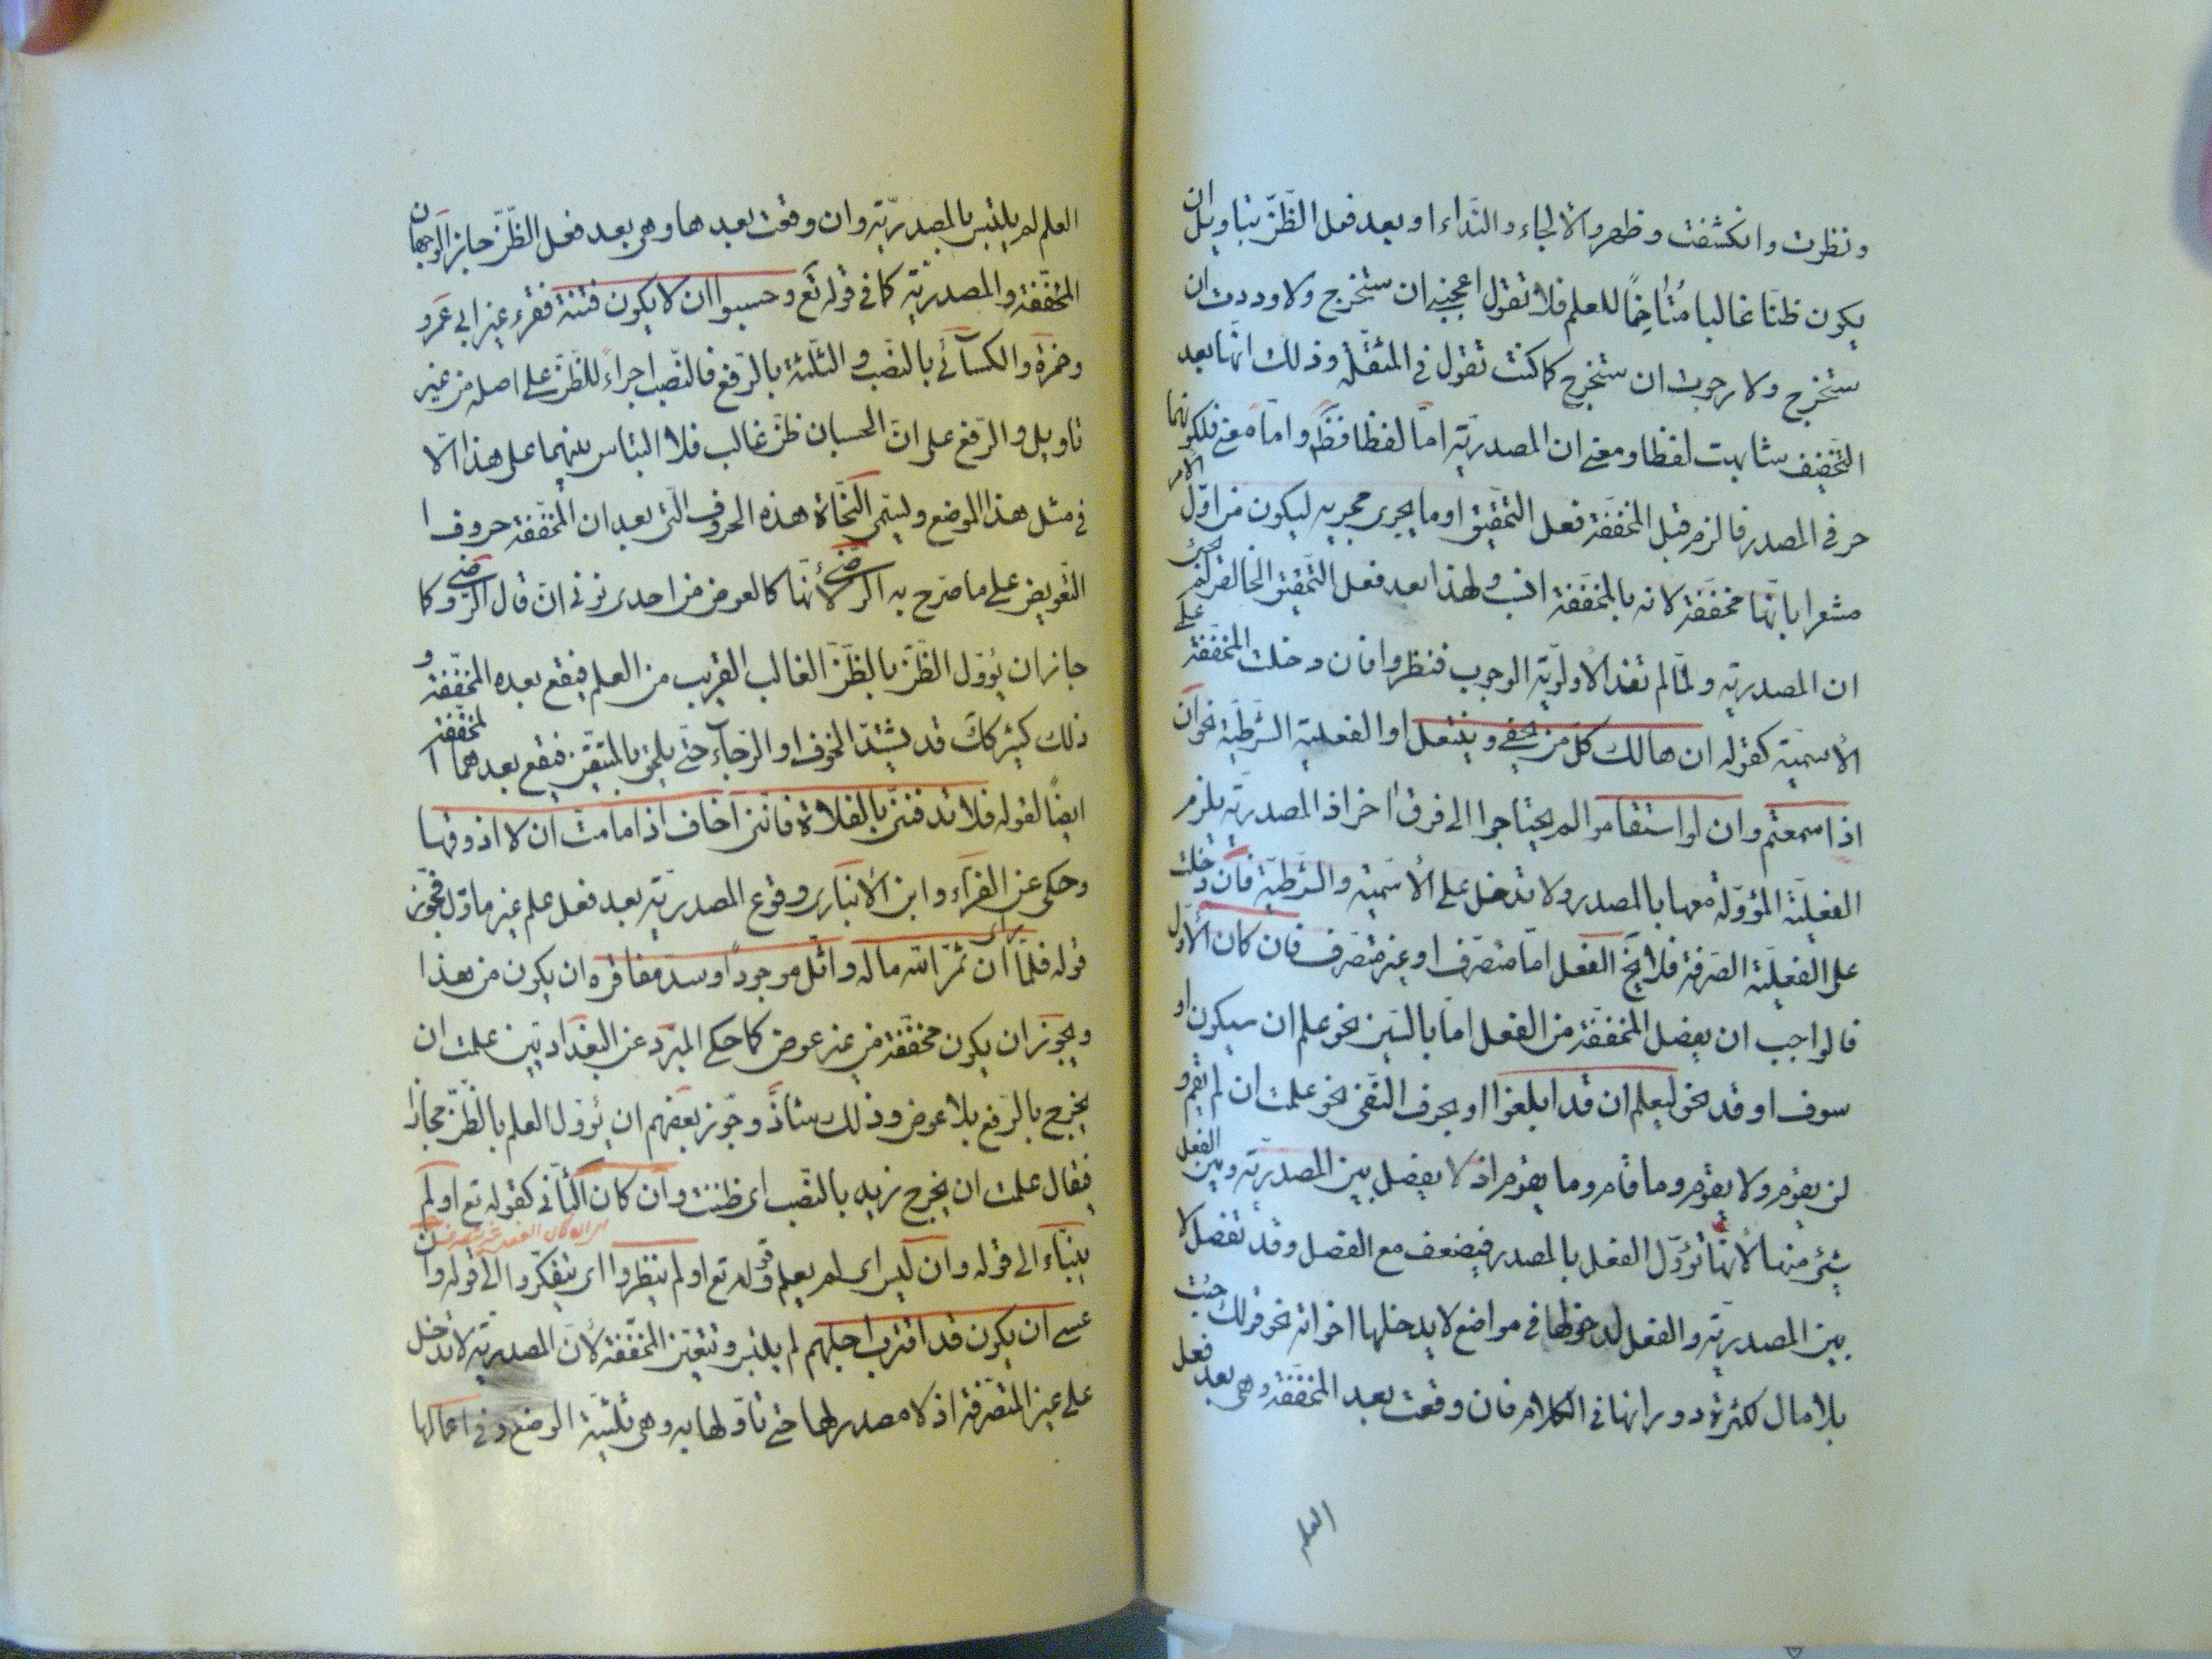 ونظرت وانكشفت وظهر والالجاء والنداء او بعد فعل الظن بتاويل ان
يكون ظنا غالبا متاخما للعلم فلا تقول اعجبني ان ستخرج ولا وددت ان
ستخرج ولا رجوت ان ستخرج كما كنت تقول في المثقلة وذلك انها بعد
التخفيف شابهت لفظا ومعنى ان المصدرية اما لفظا فظ واما معنى فلكونهما
حرفي المصدر فالزم قبل المخففة فعل التحقيق او ما يجري مجريه ليكون من اول الامر
مشعرا بانها مخففة لانه بالمخففة انسب ولهذا بعد فعل التحقيق الخالص لم يجئ
ان المصدرية ولما لم تفد الاولوية الوجوب فنظروا فان دخلت المخففة على
الاسمية كقوله ان هالك كل من يحفى وينتعل او الفعلية الشرطية نحو ان
اذا سمعتم وان لو استقاموا لم يحتاجوا الى فرق اخر اذ المصدرية يلزم
الفعلية المؤولة معها بالمصدر ولا تدخل على الاسمية والشرطية فان دخلت
على الفعلية الصرفة فلا يخ الفعل اما متصرف او غير متصرف فان كان الاول
فالواجب ان يفصل المخففة من الفعل اما بالسين نحو علم ان سيكون او
سوف او قد نحو ليعلم ان قد ابلغوا او بحرف النفى نحو علمت ان لم تقم و
لن يقوم ولا يقوم وما قام وما يقوم اذ لا يفصل بين المصدرية وبين الفعل
شئ منها لانها تؤول الفعل بالمصدر فيضعف مع الفصل وقد تفصل لا
بين المصدرية والفعل لدخولها في مواضع لا يدخلها اخواته نحو قولك جئت
بلا مال لكثرة دورانها في الكلام فان وقعت بعد المخففة وهي بعد فعل
العلم
العلم لم يلتبس بالمصدرية وان وقعت بعدها وهي بعد فعل الظن جاز الوجهان
المخففة والمصدرية كما في قوله تع وحسبوا ان لا يكون فتنة فقرء غير ابي عمرو
وحمزة والكسائي بالنصب والثلثة بالرفع فالنصب اجراء للظن على اصله من غير
تاويل والرفع على ان الحسبان ظن غالب فلا التباس بينهما على هذا الا
في مثل هذا الموضع وليسمى النحاة هذه الحروف التي بعد ان المخففة حروف ا
التعويض على ما صرح به الرضى لانها كالعوض من احدى نوني ان قال الرضى وكما
جاز ان يؤول الظن بالظن الغالب القريب من العلم فيقع بعده المخففة و
ذلك كثير كك قد يشتد الخوف او الرجاء حتى يلحق بالمتيقن فيقع بعدهما المخففة
ايضا لقوله فلا تدفنني بالفلاة فانني اخاف اذا ما مت ان لا اذوقها
وحكى عن الفراء وابن الانباري وقوع المصدرية بعد فعل علم غير ماول فجوز
قوله فلما راى ان ثمر الله ماله واثل موجودا وسد مفاقره ان يكون من هذا
ويجوز ان يكون مخففة من غير عوض كما حكى المبرد عن البغداديين علمت ان
يخرج بالرفع بلا عوض وذلك شاذ وجوز بعضهم ان يؤول العلم بالظن مجازا
فيقال علمت ان يخرج زيد بالنصب اى ظننت وان كان الثاني كقوله تع او لم
ينباء الى قوله وان ليس اى لم يعلم وقوله تع او لم ينظروا اى يتفكروا الى قوله وان
عسى ان يكون قد اقترب اجلهم لم يلتبس وتتعين المخففة لان المصدرية لا تدخل
على غير المتصرفة اذ لا مصدر لها حتى تاولها به وهي ثلثية الوضع وفي اعمالها